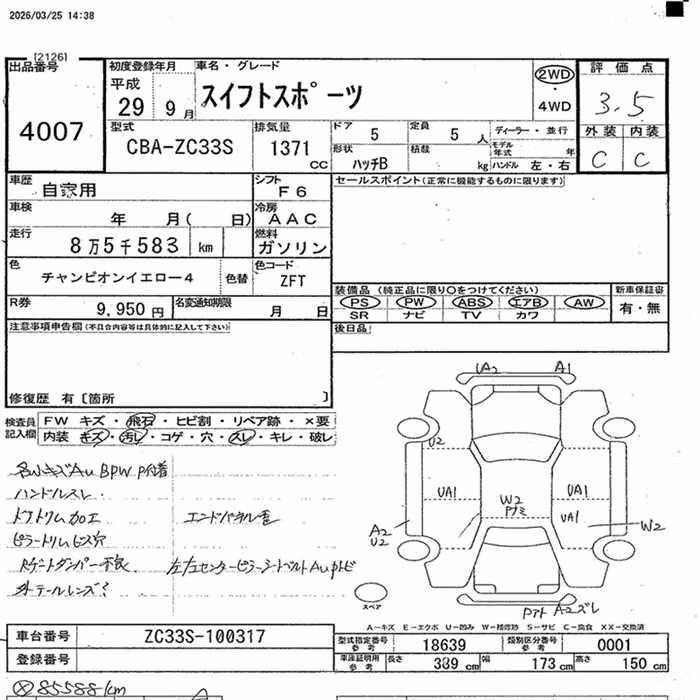 2026/03/25 14:38
[2126]
出品番号
4007
初度登録年月
平成
29 9月
車名・グレード
スイフトスポーツ
2WD
・
4WD
評価点
3.5
外装 内装
C C
型式
CBA-ZC33S
排気量
1371
CC
ドア 5
定員 5 人
ディーラー・並行
形状 ハッチB
積載 kg
モデル年式 年
ハンドル 左・右
車歴 自家用
シフト F6
セールスポイント(正常に機能するものに限ります)
車検 年 月( 日)
冷房 AAC
走行 8万5千583 km
燃料 ガソリン
色 チャンピオンイエロー4
色替
色コード ZFT
装備品 (純正品に限り○をつけてください)
PS PW ABS エアB AW
SR ナビ TV カワ
新車保証書
有・無
R券 9,950円
名変通知期限 月 日
後日品
注意事項申告欄(不具合内容等は具体的に記入して下さい)
修復歴 有〔箇所 〕
検査員記入欄
FW キズ・飛石・ヒビ割・リペア跡・×要
内装 キズ・汚レ・コゲ・穴・スレ・キレ・破レ
ハンドルスレ
ドアトリム加工
エンドパネル歪
ピラートリムビス穴
UA2 A1
U2
UA1
W2
UA1
UA1
W2
A2
U2
A2ズレ
スペア
A-キズ E-エクボ U-凹み W-補修跡 S-サビ C-腐食 XX-交換済
車台番号 ZC33S-100317
登録番号
型式指定番号 参考 18639
類別区分番号 参考 0001
車庫証明用 参考
長さ 389 cm
幅 173 cm
高さ 150 cm
85588km